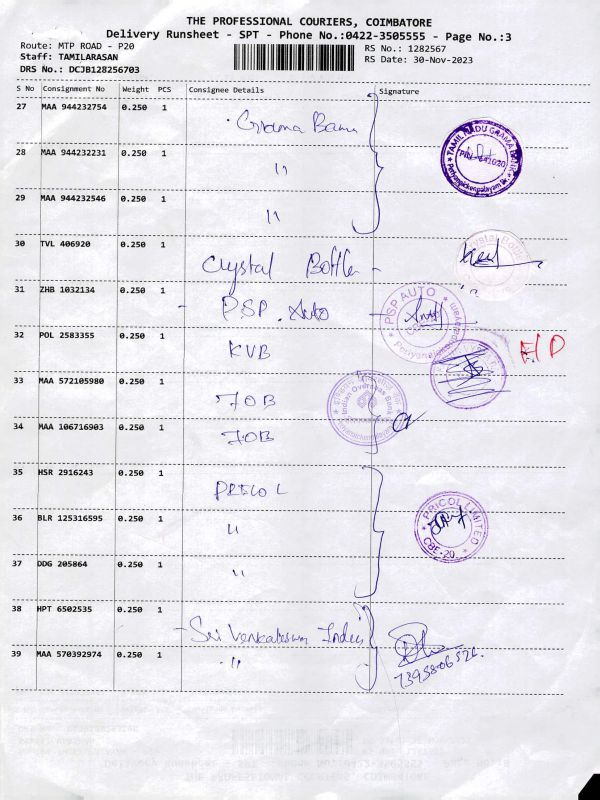 THE PROFESSIONAL COURIERS, COIMBATORE
Delivery Runsheet - SPT - Phone No.:0422-3505555 - Page No.:3
Route: MTP ROAD - P20
RS No.: 1282567
Staff: TAMILARASAN
RS Date: 30-Nov-2023
DRS No.: DCJB128256703
S No Consignment No Weight PCS Consignee Details Signature
27 MAA 944232754 0.250 1 Grama Bank
TAMIL NADU GRAMA BANK
PIN - 641020
Periyanaickenpalayam Br.
28 MAA 944232231 0.250 1 "
29 MAA 944232546 0.250 1 "
30 TVL 406920 0.250 1 Crystal Bottle
Crystal Bottle
31 ZHB 1032134 0.250 1 PSP. Auto
PSP AUTO
32 POL 2583355 0.250 1 KVB
33 MAA 572105980 0.250 1 IOB
Indian Overseas Bank
34 MAA 106716903 0.250 1 IOB
35 HSR 2916243 0.250 1 PRICOL
PRICOL LIMITED
CBE-20.
36 BLR 125316595 0.250 1 "
37 DDG 205864 0.250 1 "
38 HPT 6502535 0.250 1 Sri Venkateswara Indus
39 MAA 570392974 0.250 1 "